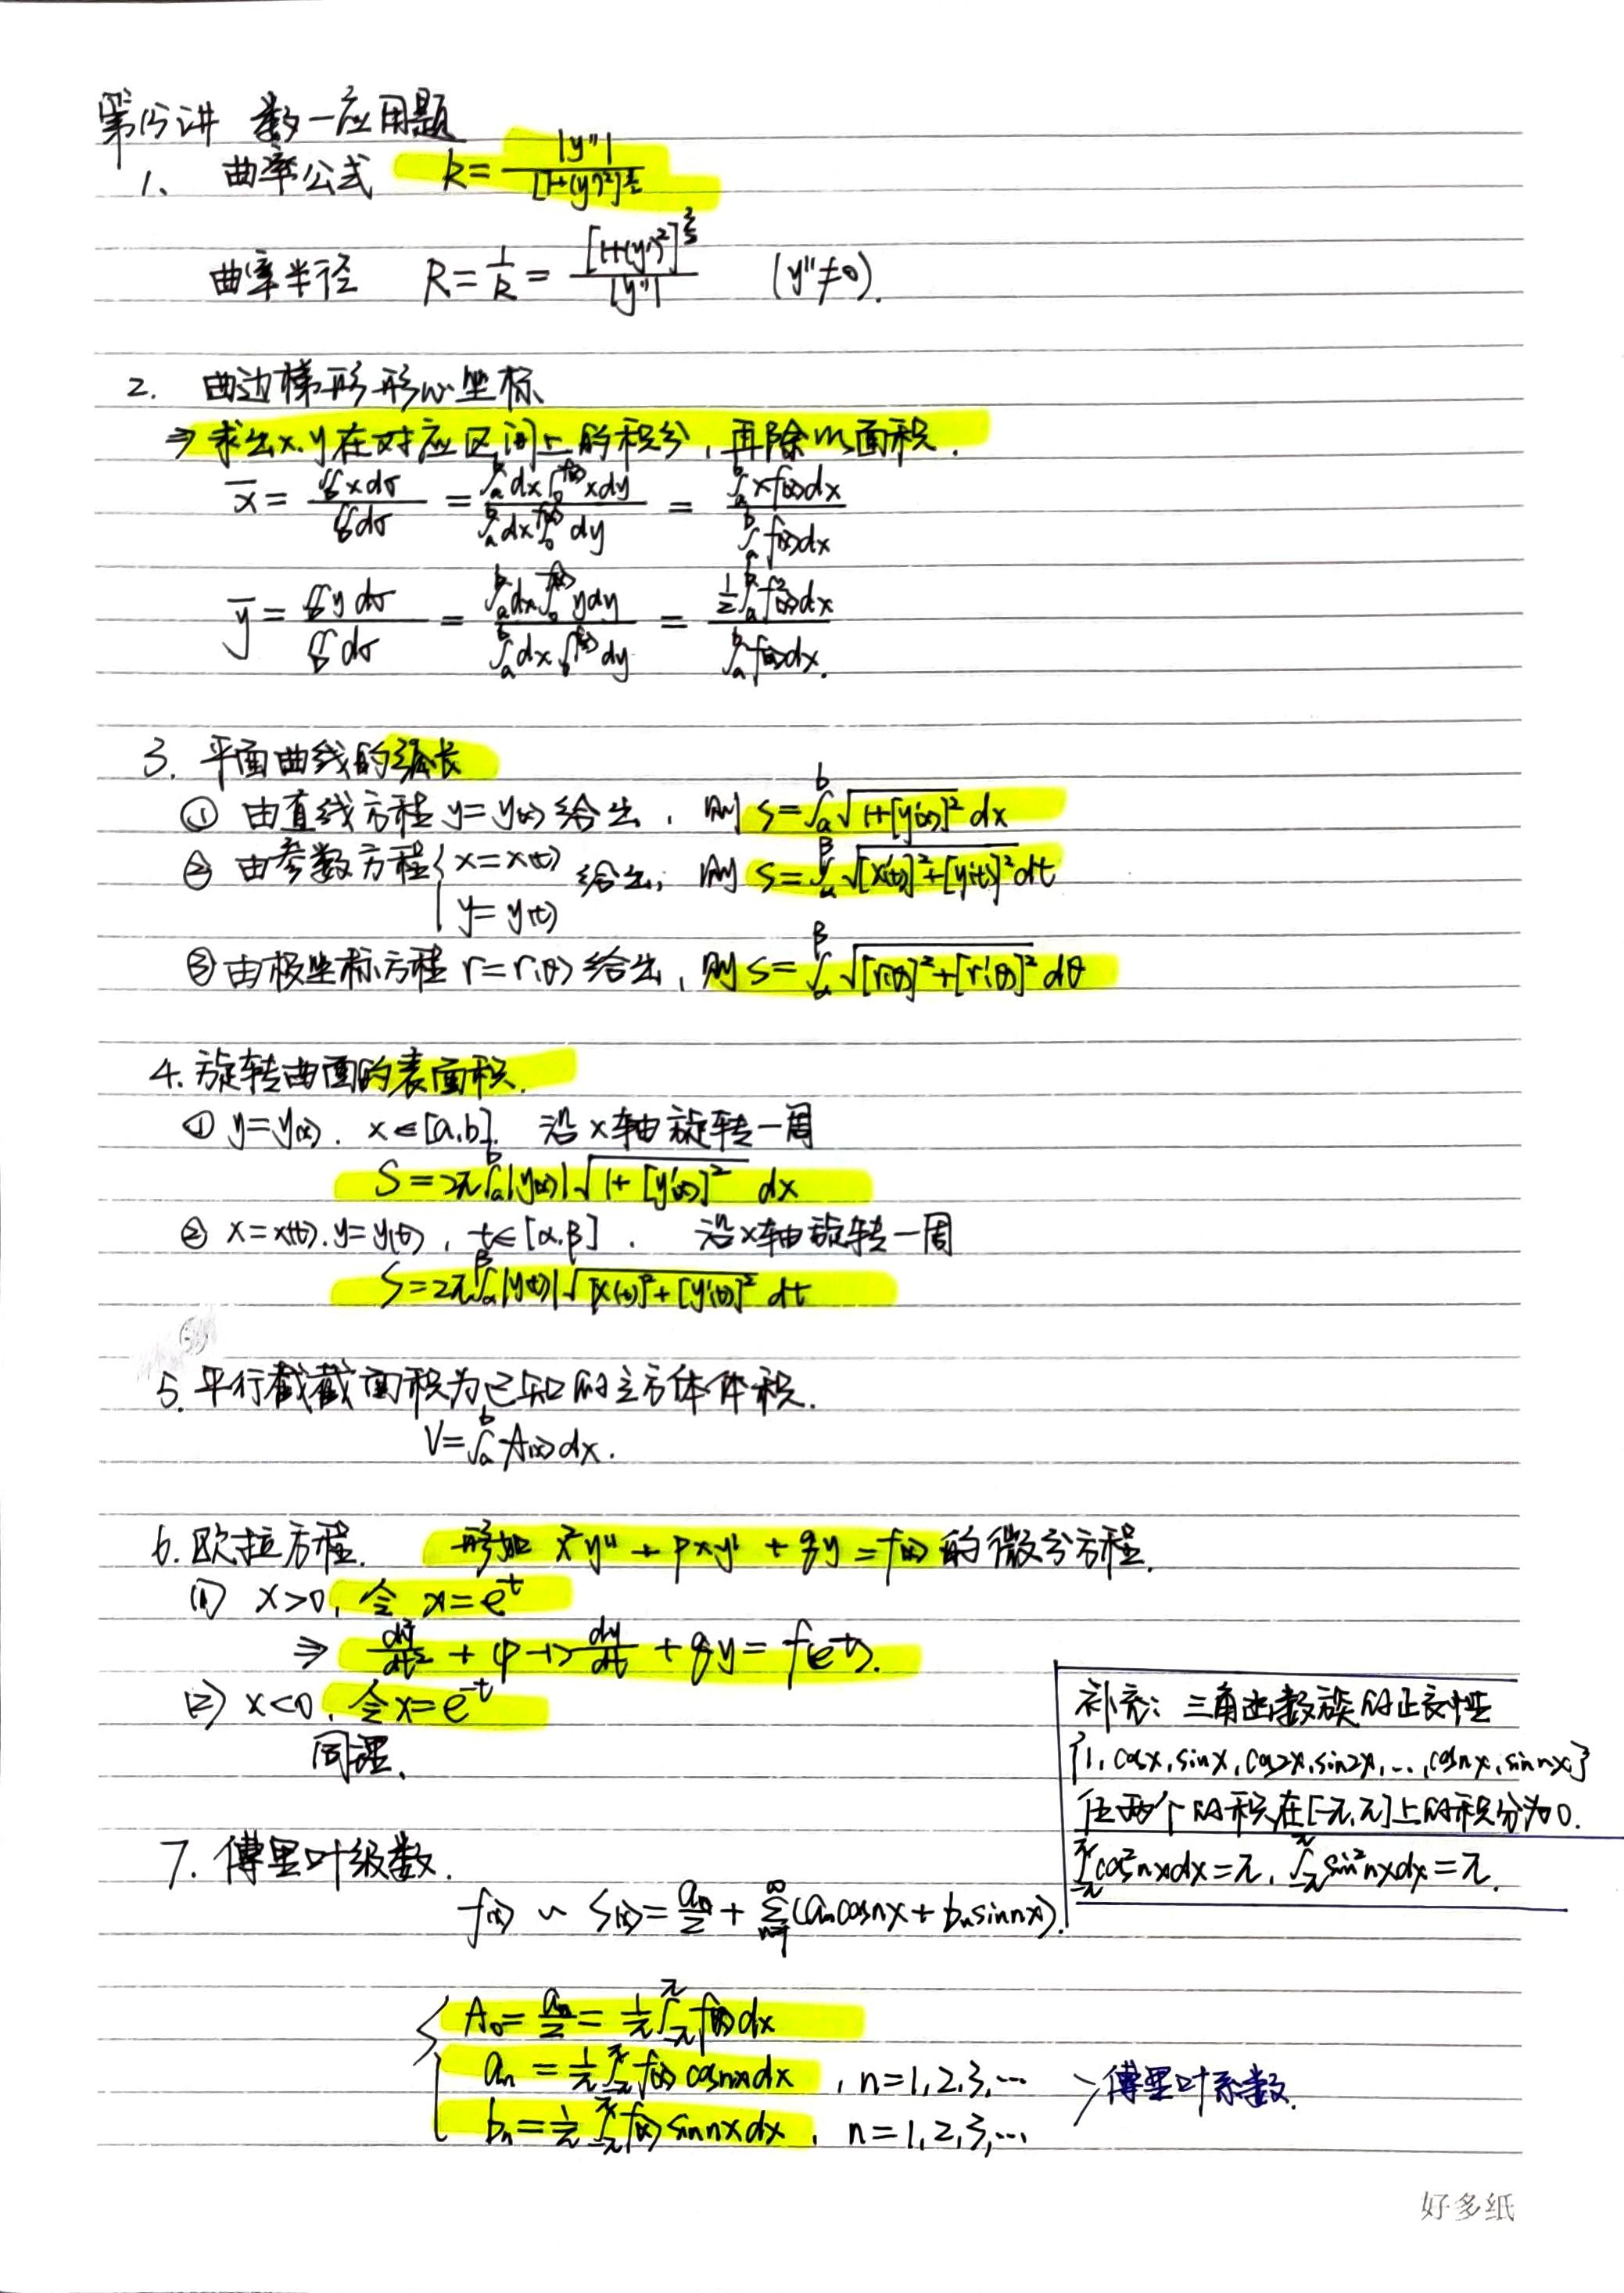 第15讲 数一应用题
1、 曲率公式 k = |y''| / [1+(y')²]^(3/2)
曲率半径 R = 1/k = [1+(y')²]^(3/2) / |y''| (y''≠0).
2. 曲边梯形形心坐标
⇒ 求出x.y在对应区间上的积分,再除以面积.
x̄ = ∬_D x dσ / ∬_D dσ = ∫_a^b dx ∫_0^f(x) x dy / ∫_a^b dx ∫_0^f(x) dy = ∫_a^b x f(x) dx / ∫_a^b f(x) dx
ȳ = ∬_D y dσ / ∬_D dσ = ∫_a^b dx ∫_0^f(x) y dy / ∫_a^b dx ∫_0^f(x) dy = ½∫_a^b f²(x) dx / ∫_a^b f(x) dx.
3. 平面曲线的弧长
① 由直线方程 y=y(x) 给出, 则 s = ∫_a^b √(1+[y'(x)]²) dx
② 由参数方程 { x=x(t) 给出, 则 s = ∫_α^β √([x'(t)]²+[y'(t)]²) dt
y=y(t)
③ 由极坐标方程 r=r(θ) 给出, 则 s = ∫_α^β √([r(θ)]²+[r'(θ)]²) dθ
4. 旋转曲面的表面积.
① y=y(x). x∈[a,b]. 沿x轴旋转一周
S = 2π∫_a^b |y(x)| √(1+[y'(x)]²) dx
② x=x(t). y=y(t), t∈[α,β]. 沿x轴旋转一周
S = 2π∫_α^β |y(t)| √([x'(t)]²+[y'(t)]²) dt
5. 平行截截面积为已知的立方体体积.
V = ∫_a^b A(x) dx.
6. 欧拉方程. 形如 x²y'' + pxy' + qy = f(x) 的微分方程.
(1) x>0, 令 x=e^t
⇒ d²y/dt² + (p-1) dy/dt + qy = f(e^t).
(2) x<0, 令 x=e^-t
同理.
补充: 三角函数族的正交性
{1, cosx, sinx, cos2x, sin2x, ..., cosnx, sinnx}
任两个的积在[-π,π]上的积分为0.
∫_-π^π cos²nx dx = π, ∫_-π^π sin²nx dx = π.
7. 傅里叶级数.
f(x) ~ S(x) = a₀/2 + Σ_{n=1}^∞ (aₙcosnx + bₙsinnx).
{ A₀ = a₀/2 = 1/π ∫_-π^π f(x) dx
aₙ = 1/π ∫_-π^π f(x) cosnx dx, n=1,2,3,…
> 傅里叶系数.
bₙ = 1/π ∫_-π^π f(x) sinnx dx, n=1,2,3,…
好多纸